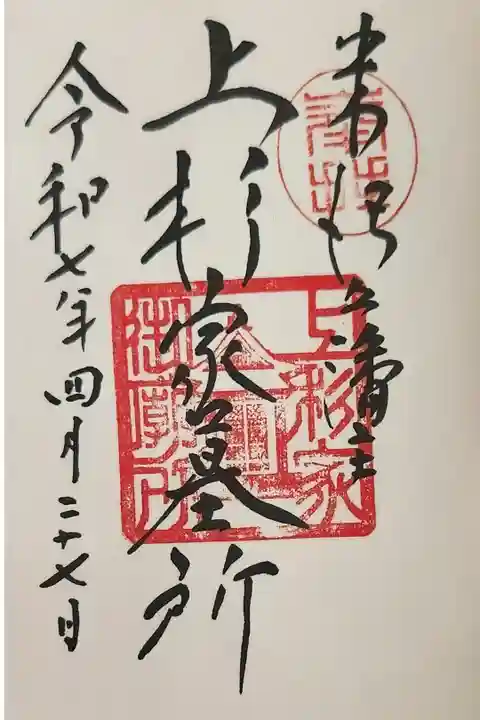 米沢藩主
上杉家墓所
令和七年四月二十七日
上杉家
御廟所